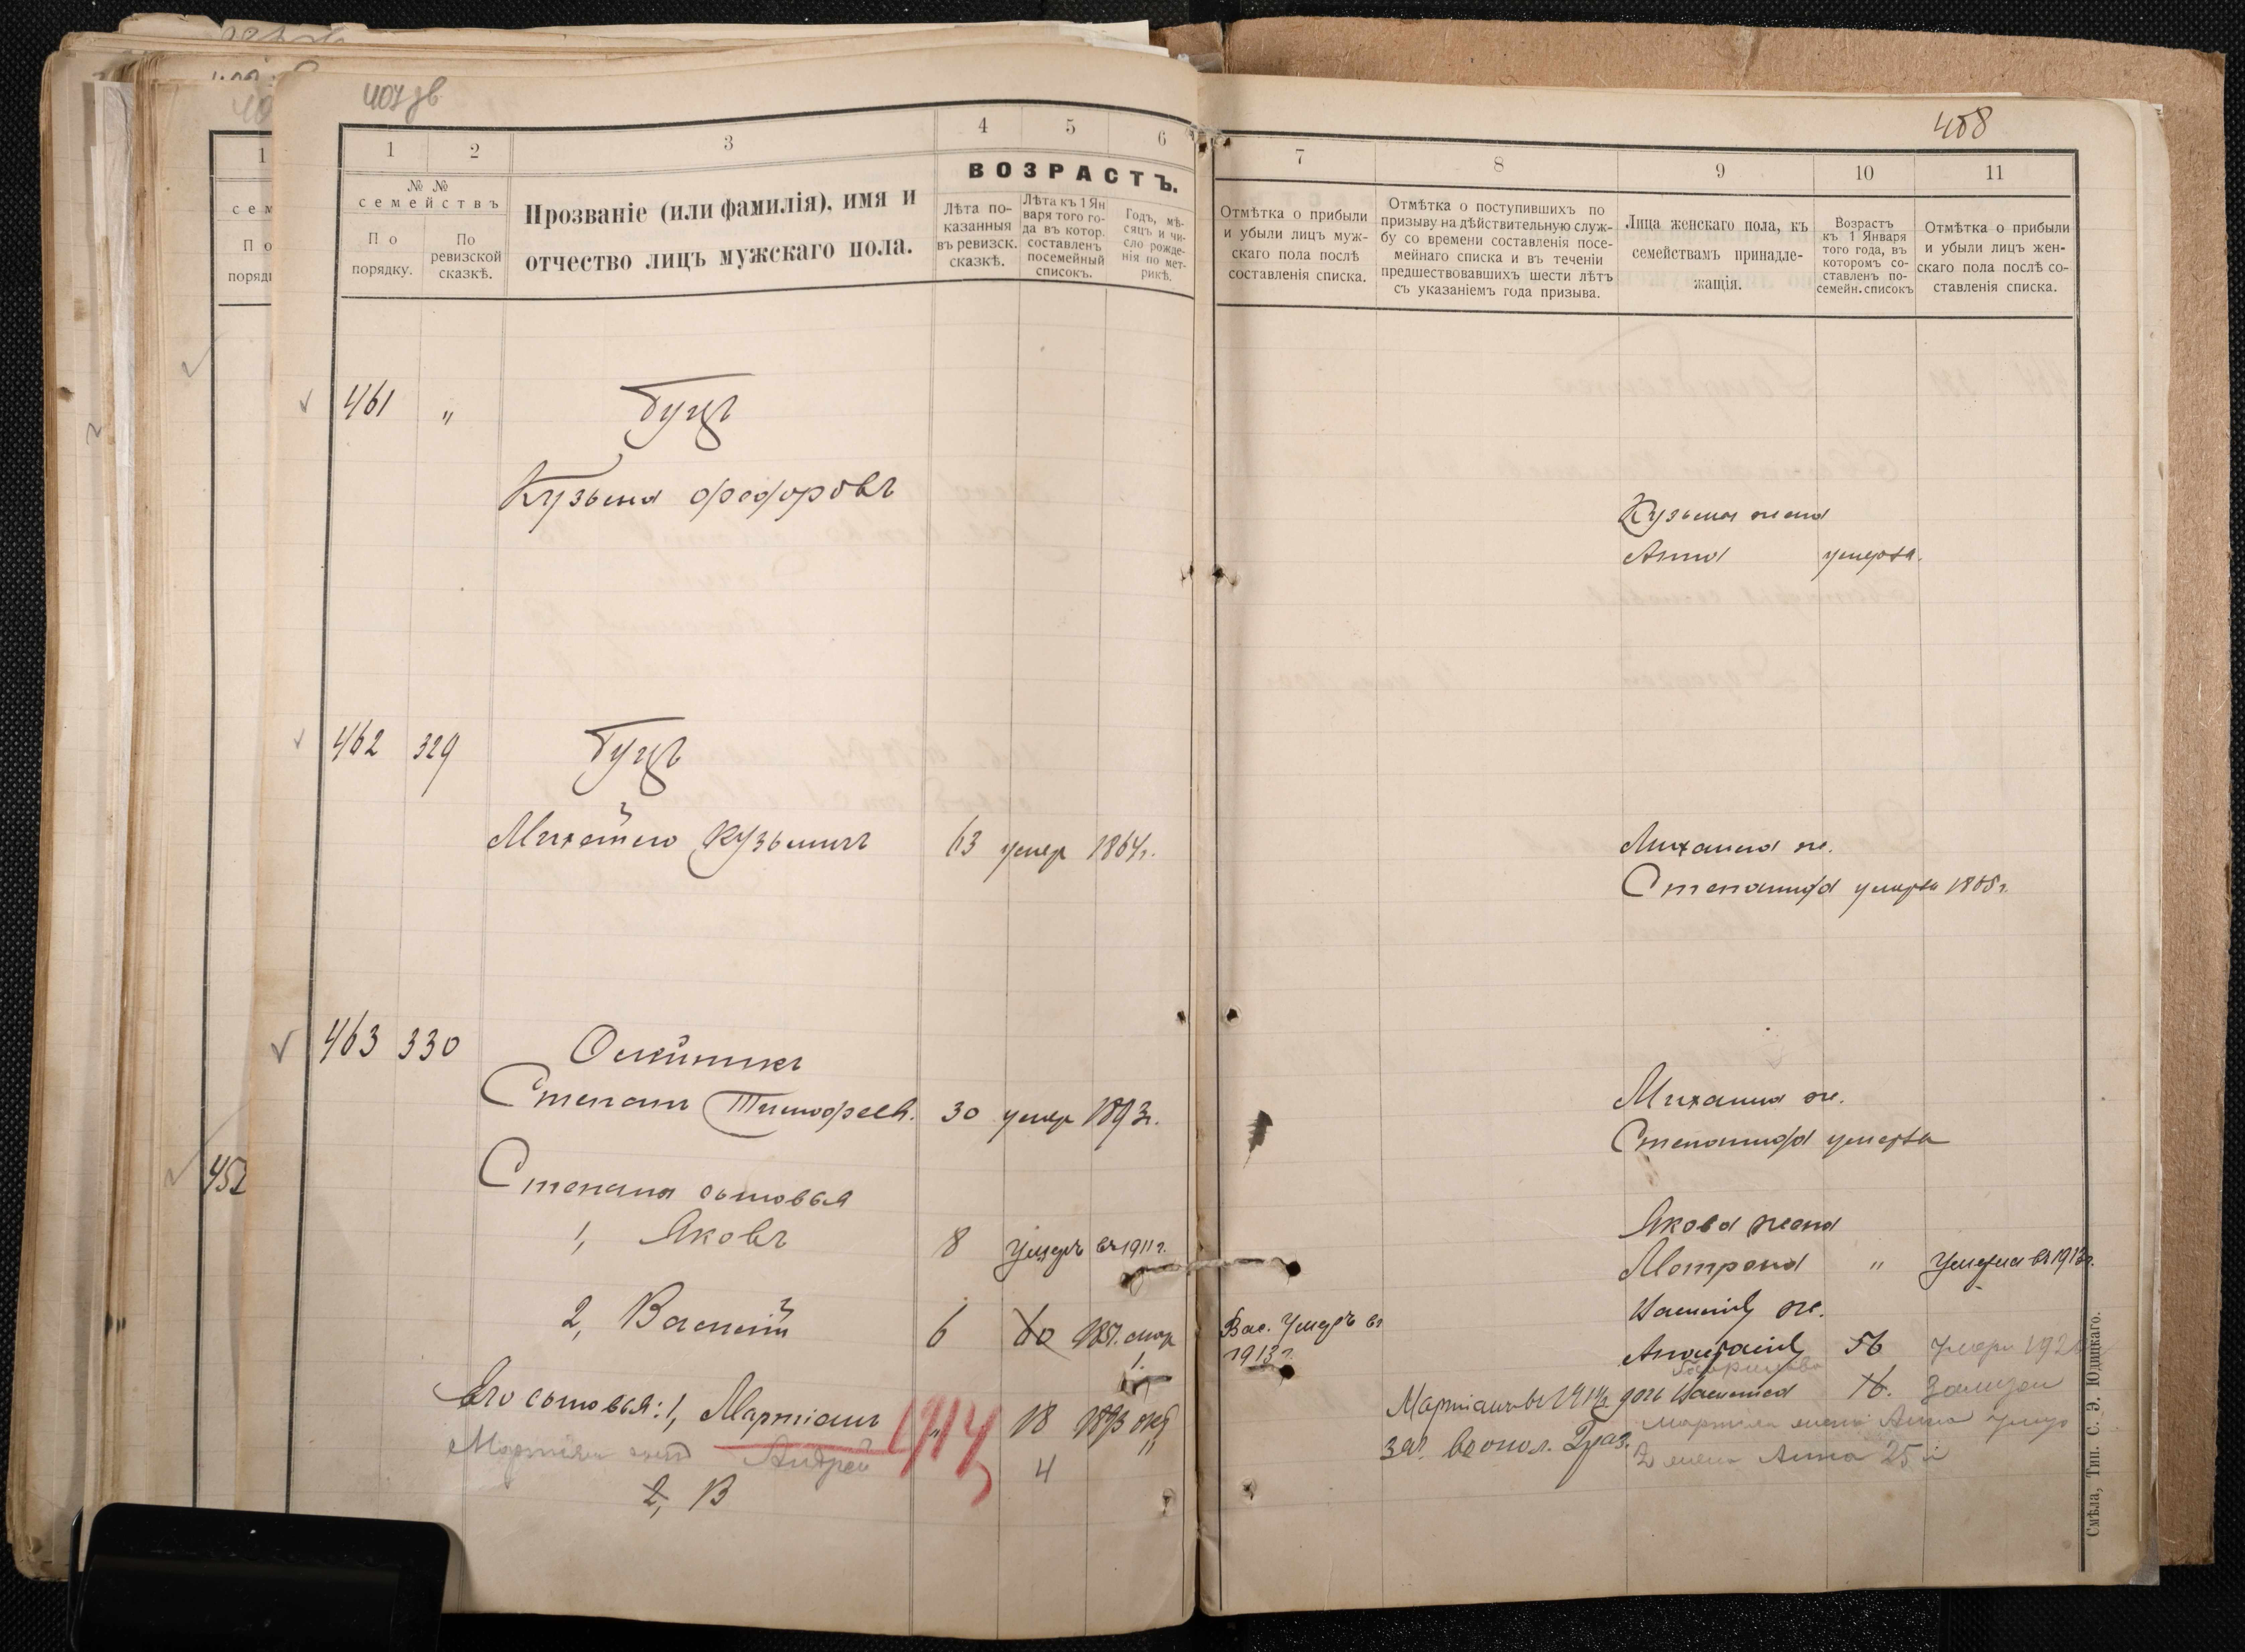 407 зв
1
2
3
4
5
6
№ №
семействъ
По
порядку.
По
ревизской
сказкѣ.
Прозваніе (или фамилія), имя и
отчество лицъ мужскаго пола.
ВОЗРАСТЪ.
Лѣта по-
казанныя
въ ревизск.
сказкѣ.
Лѣта къ 1 Ян
варя того го-
да въ котор.
составленъ
посемейный
списокъ.
Годъ, мѣ-
сяцъ и чи-
сло рожде-
нія по мет-
рикѣ.
461 "
Гуцъ
Кузьма Федоровъ
462 329 Гуцъ
Михайло Кузьмичъ 63 умер 1864г.
463 330 Олійникъ
Степанъ Тимофеев. 30 умер 1893г.
Степана сыновья
1, Яковъ 8 Умеръ въ 1911 г.
2, Василій 6 60
Его сыновья: 1, Мартіанъ " 18 1893 окт
1914
Андрей 4
2, В
452
408
7
8
9
10
11
Отмѣтка о прибыли
и убыли лицъ муж-
скаго пола послѣ
составленія списка.
Отмѣтка о поступившихъ по
призыву на дѣйствительную служ-
бу со времени составленія посе-
мейнаго списка и въ теченіи
предшествовавшихъ шести лѣтъ
съ указаніемъ года призыва.
Лица женскаго пола, къ
семействамъ принадле-
жащія.
Возрастъ
къ 1 Января
того года, въ
которомъ со-
ставленъ по-
семейн. списокъ
Отмѣтка о прибыли
и убыли лицъ жен-
скаго пола послѣ со-
ставленія списка.
Кузьмы жена
Анна умерла.
Михаила ж.
Степанида умерла
Михаила ж.
Степанида умерла
Якова жена
Мотрона " Умерла въ 1913г.
Василія ж.
Вас. Умеръ въ
1913 г.
56
Мартіанъ въ 1914 г. дочь 16.
зач. в ополч. 2 раз.
жена Анна 25
Смѣла, Тип. С. Э. Юдицкаго.